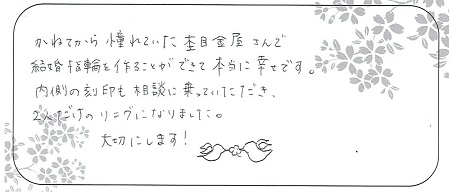 かねてから憧れていた杢目金屋さんで
結婚指輪を作ることができて本当に幸せです。
内側の刻印も相談に乗っていただき、
2人だけのリングになりました。
大切にします!